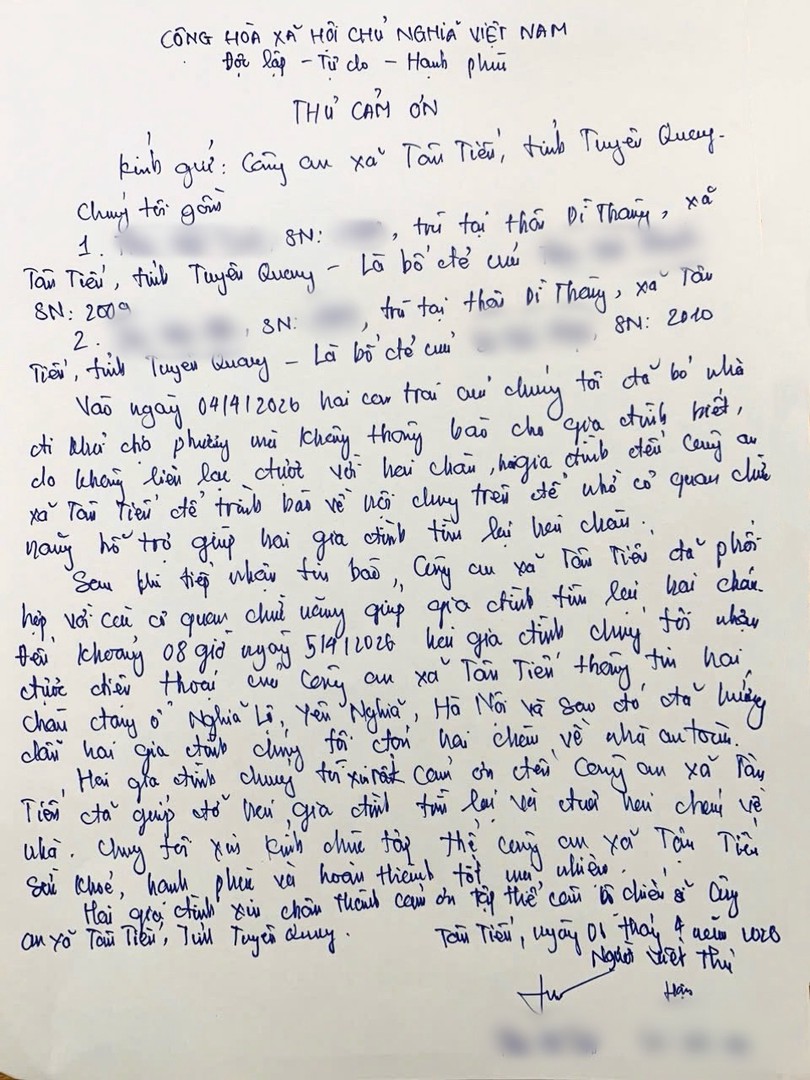 CỘNG HÒA XÃ HỘI CHỦ NGHĨA VIỆT NAM
Độc lập - Tự do - Hạnh phúc
THƯ CẢM ƠN
Kính gửi: Công an xã Tân Tiến, tỉnh Tuyên Quang.
Chúng tôi gồm
1. SN: , trú tại thôn Dì Thàng, xã
Tân Tiến, tỉnh Tuyên Quang - Là bố đẻ cháu
SN: 2009
2. , SN: , trú tại thôn Dì Thàng, xã Tân
Tiến, tỉnh Tuyên Quang - Là bố đẻ cháu SN: 2010
Vào ngày 04/4/2026 hai con trai của chúng tôi đã bỏ nhà
đi khỏi địa phương mà không thông báo cho gia đình biết,
do không liên lạc được với hai cháu, hai gia đình đến Công an
xã Tân Tiến để trình báo về nội dung trên để nhờ cơ quan chức
năng hỗ trợ giúp hai gia đình tìm lại hai cháu.
Sau khi tiếp nhận tin báo, Công an xã Tân Tiến đã phối
hợp với các cơ quan chức năng giúp gia đình tìm lại hai cháu.
Đến khoảng 08 giờ ngày 5/4/2026 hai gia đình chúng tôi nhận
được điện thoại của Công an xã Tân Tiến thông tin hai
cháu đang ở Nghĩa Lộ, Yên Nghĩa, Hà Nội và sau đó đã hướng
dẫn hai gia đình chúng tôi đón hai cháu về nhà an toàn.
Hai gia đình chúng tôi xin rất cảm ơn đến Công an xã Tân
Tiến đã giúp đỡ hai gia đình tìm lại và đưa hai cháu về
nhà. Chúng tôi xin kính chúc tập thể công an xã Tân Tiến
sức khoẻ, hạnh phúc và hoàn thành tốt mọi nhiệm.
Hai gia đình xin chân thành cảm ơn tập thể cán bộ chiến sĩ Công
an xã Tân Tiến, Tỉnh Tuyên Quang.
Tân Tiến, ngày tháng 4 năm 2026
Người viết thư